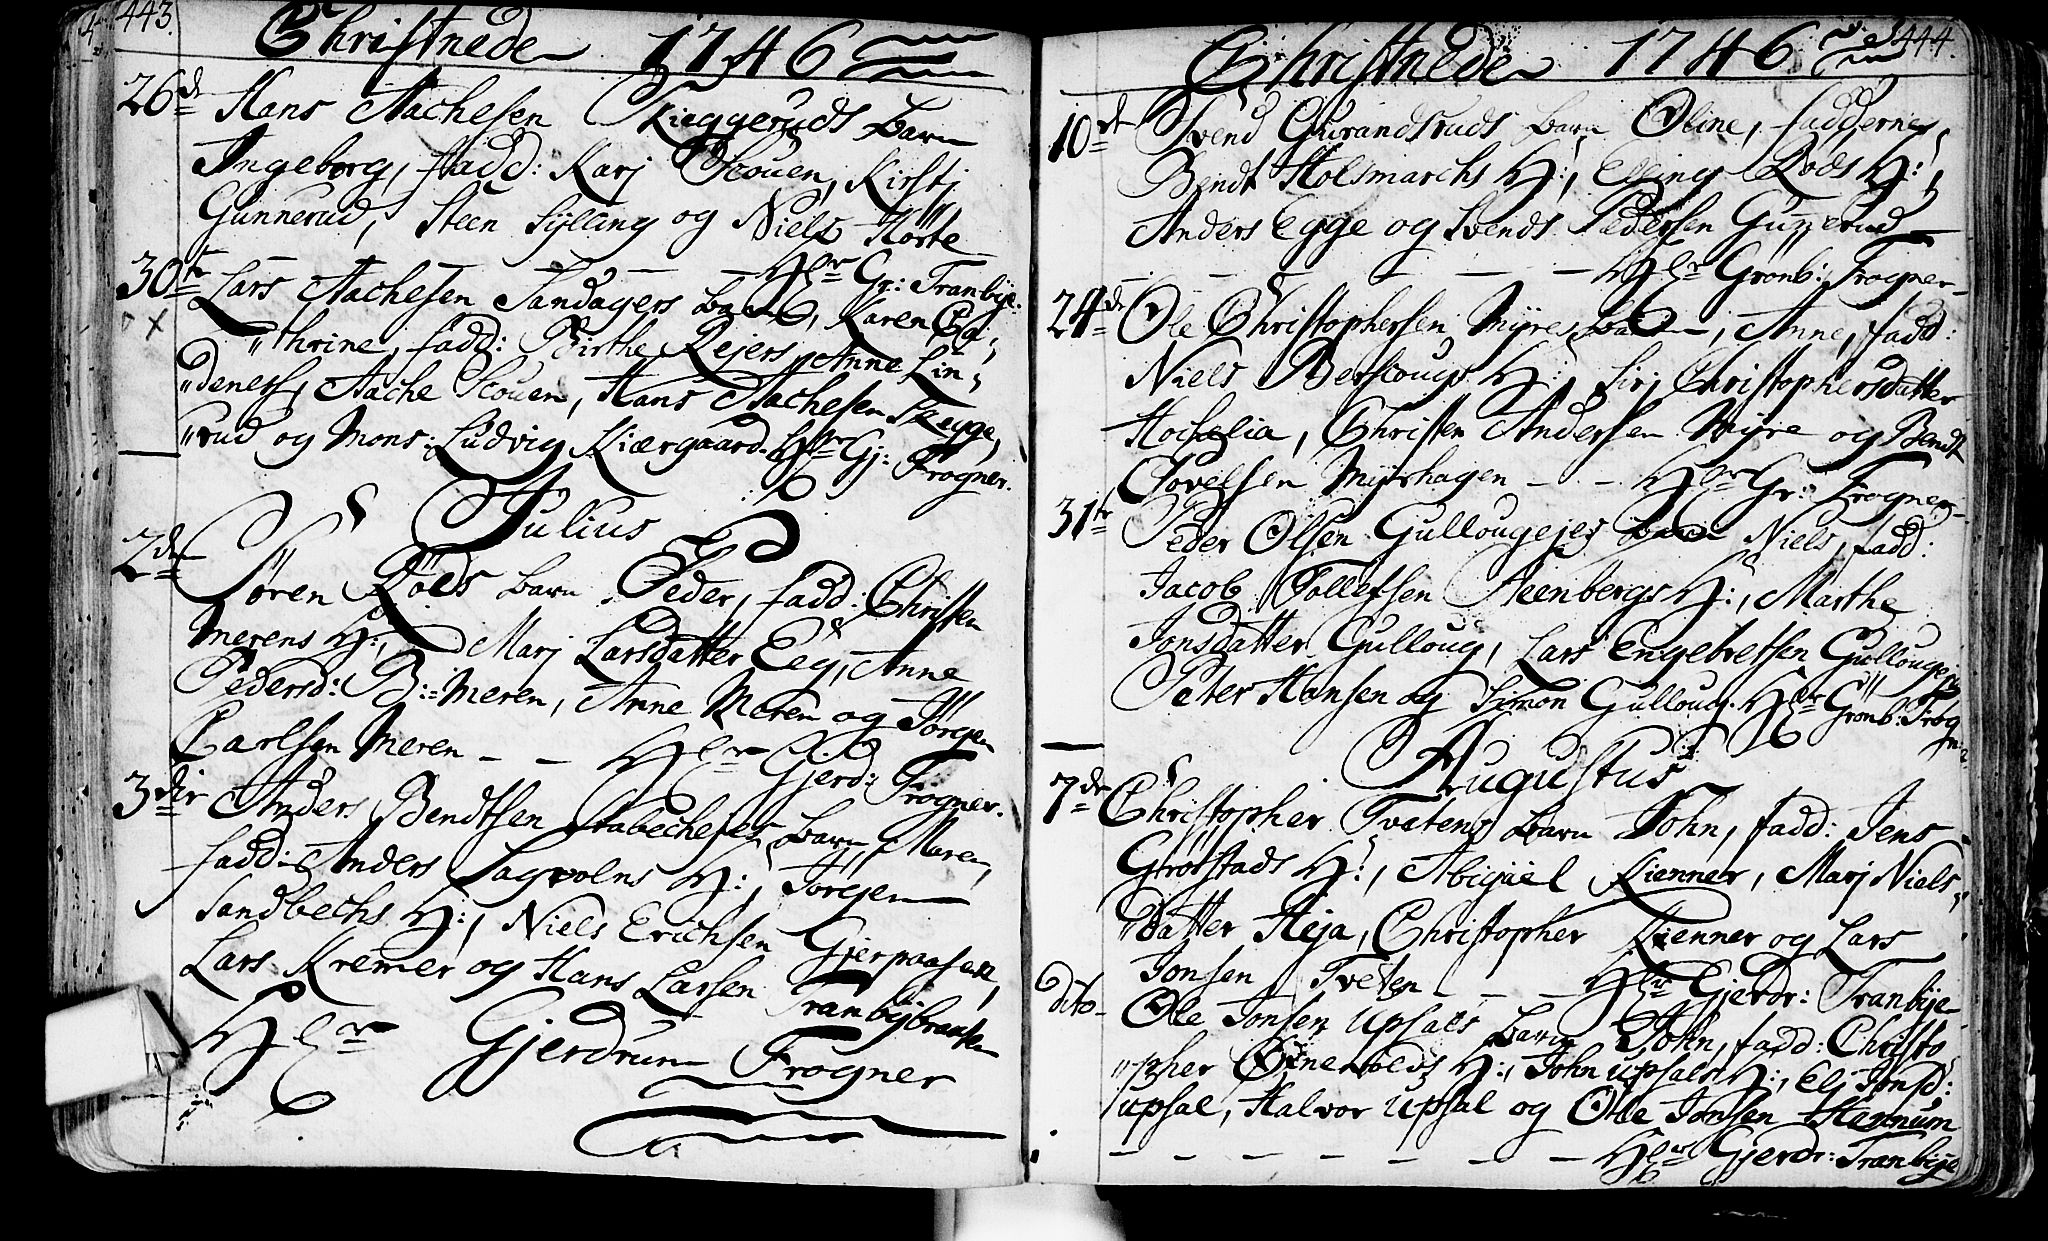 443.
Christnede 1746
26de Hans Aachesen Kieggeruds barn
Ingeborg, fadd: Karj Scouen, Kirstj
Gunnerud, Steen Sylling og Niels Hörte
— — — Hr Gr: Tranbye.
30te Lars Aachesen Sandagers barn, Karen Ca-
"thrine, fadd: Birthe Rejers, Anne Lin-
"denes, Aache Scouen, Hans Aachesen Kegge,
"rud og Mons: Ludvig Kiærgaard. Hr Gj: Frogner.
Julius
2den Sören Röeds barn Peder, fadd: Christen
Merens H:, Marj Larsdatter Eeg, Anne
Pedersd: B:=Meren, Anne Meren og Jörgen
Carlsen Meren — — Hr Gjerd: Frogner.
3die Anders Bendtsen Stabechejes barn, Maren,
fadd: Anders Lagvolens H:, Jörgen
Sandbechs H:, Niels Erichsen Gjerpaasen,
Lars Kremer og Hans Larsen Tranbybraaten
Hr Gjerdrum Frogner
444.
Christnede 1746
10de Svend Gurandsruds barn Oline, fadderne,
Bendt Holsmarchs H:, Elling Röds H:,
Anders Egge og Svends Pedersen Gunnerud
— — — — — Hr Gronb: Frogner
24de Ole Christophersen Myres barn, Anne, fadd:
Niels Berscougs H: Sirj Christophersdatter
Hochelia, Christen Andersen Myre og Bendt
Povelsen Myrhagen — — Hr Gr: Frogner
31te Peder Olsen Gullougejes barn Niels, fadd:
Jacob Tollefsen Steenbergs H:, Marthe
Jonsdatter Gulloug, Lars Engebretsen Gullougeje
Peter Hansen og Simon Gulloug. Hr Grönb: Frog
n:
Augustus
7de Christopher Tvetens barn John, fadd: Jens
Grorstads H:, Abigael Kienner, Marj Niels-
"datter Heja, Christopher Kienner og Lars
Jonsen Tveten — — Hr Gjerdr: Tranbye
dito Ole Jonsen Upsals barn John, fadd: Christo
"pher Ennerolds H:, John Upsals H:, Elj Jonsd:
Upsal, Halvor Upsal og Ole Jonsen Hennum
— — — — — — — Hr Gjerdr: Tranbye